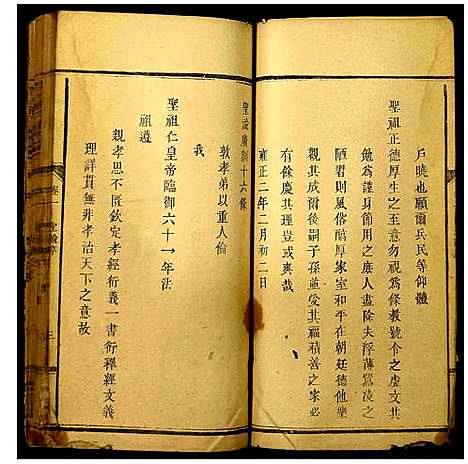 戶曉也願爾兵民等仰體
聖祖正德厚生之至意勿視為條教號令之虛文共
勉為謹身節用之庶人盡除夫浮薄囂凌之
陋習則風俗醇厚家室和平在朝廷德化樂
觀其成爾後嗣子孫並受其福積善之家必
有餘慶其理豈或爽哉
雍正二年二月初二日
聖諭廣訓十六條
敦孝弟以重人倫
我
聖祖仁皇帝臨御六十一年法
祖遵
親孝思不匱欽定孝經衍義一書衍釋經文義
理詳貫無非孝治天下之意故